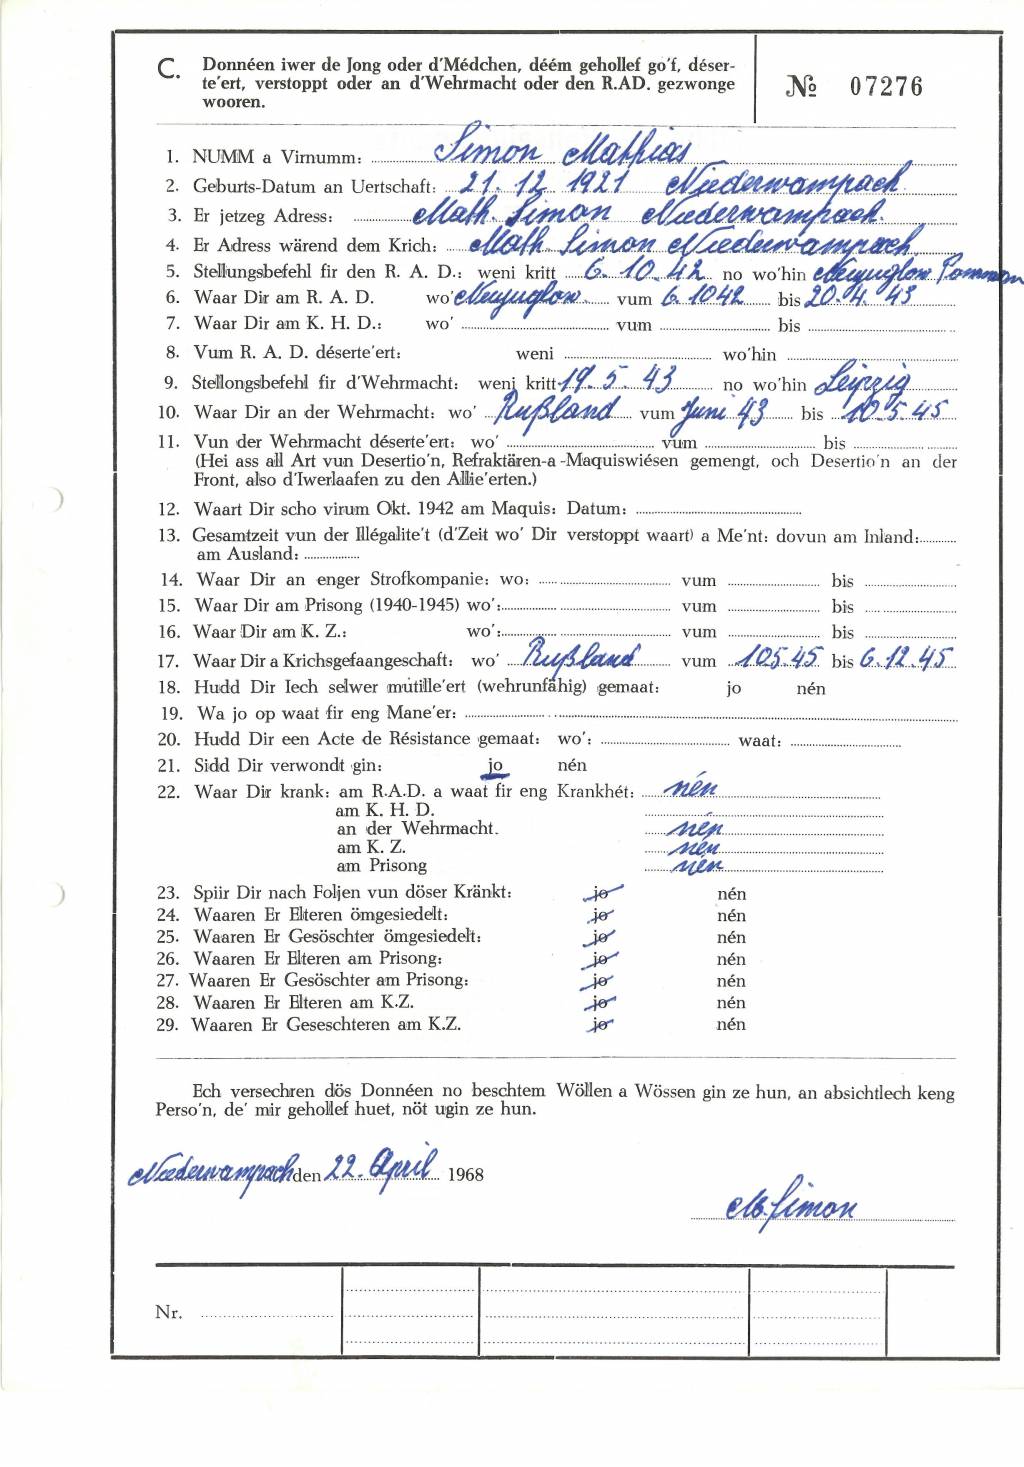 C. Donnéen iwer de Jong oder d'Médchen, déém gehollef go'f, déser-
te'ert, verstoppt oder an d'Wehrmacht oder den R.AD. gezwonge
wooren.
№ 07276
1. NUMM a Virnumm: Simon Mathias
2. Geburts-Datum an Uertschaft: 21. 12. 1921 Niederwampach
3. Er jetzeg Adress: Math. Simon Niederwampach.
4. Er Adress wärend dem Krich: Math. Simon Niederwampach.
5. Stellungsbefehl fir den R. A. D.: weni kritt 6. 10. 42 no wo'hin
6. Waar Dir am R. A. D. wo' vum 6.1042 bis 20. 4. 43
7. Waar Dir am K. H. D.: wo' vum bis
8. Vum R. A. D. déserte'ert: weni wo'hin
9. Stellongsbefehl fir d'Wehrmacht: weni kritt 19. 5. 43 no wo'hin Leipzig
10. Waar Dir an der Wehrmacht: wo' Rußland vum Juni 43 bis 10.5.45
11. Vun der Wehrmacht déserte'ert: wo' vum bis
(Hei ass all Art vun Desertio'n, Refraktären-a-Maquiswiésen gemengt, och Desertio'n an der
Front, also d'Iwerlaafen zu den Allie'erten.)
12. Waart Dir scho virum Okt. 1942 am Maquis: Datum:
13. Gesamtzeit vun der Illégalite't (d'Zeit wo' Dir verstoppt waart) a Me'nt: dovun am Inland:
am Ausland:
14. Waar Dir an enger Strofkompanie: wo: vum bis
15. Waar Dir am Prisong (1940-1945) wo': vum bis
16. Waar Dir am K. Z.: wo': vum bis
17. Waar Dir a Krichsgefaangeschaft: wo' Rußland vum 10.5.45 bis 6.12.45
18. Hudd Dir Iech selwer mutille'ert (wehrunfähig) gemaat: jo nén
19. Wa jo op waat fir eng Mane'er:
20. Hudd Dir een Acte de Résistance gemaat: wo': waat:
21. Sidd Dir verwondt gin: jo nén
22. Waar Dir krank: am R.A.D. a waat fir eng Krankhét: nén
am K. H. D.
an der Wehrmacht. nén
am K. Z. nén
am Prisong nén
23. Spiir Dir nach Foljen vun döser Kränkt: jo nén
24. Waaren Er Elteren ömgesiedelt: jo nén
25. Waaren Er Gesöschter ömgesiedelt: jo nén
26. Waaren Er Elteren am Prisong: jo nén
27. Waaren Er Gesöschter am Prisong: jo nén
28. Waaren Er Elteren am K.Z. jo nén
29. Waaren Er Geseschteren am K.Z. jo nén
Ech versechren dös Donnéen no beschtem Wöllen a Wössen gin ze hun, an absichtlech keng
Perso'n, de' mir gehollef huet, nöt ugin ze hun.
Niederwampach den 22. April 1968
M. Simon
Nr.